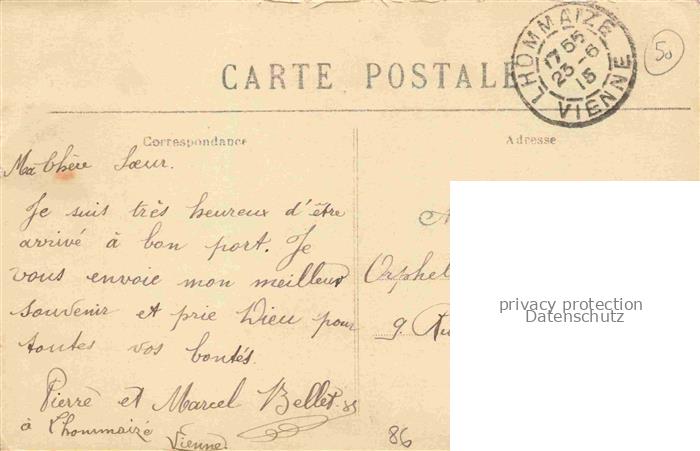 LHOMMAIZE
17 55
23 - 6
15
VIENNE
50
CARTE POSTALE
Correspondance
Adresse
Ma Chère Sœur.
Je suis très heureux d'être
arrivé à bon port. Je
vous envoie mon meilleur
souvenir et prie Dieu pour
toutes vos bontés.
Pierre et Marcel Bellet
à Lhommaizé
Vienne.
Orphel
9. Ru
privacy protection
Datenschutz
86